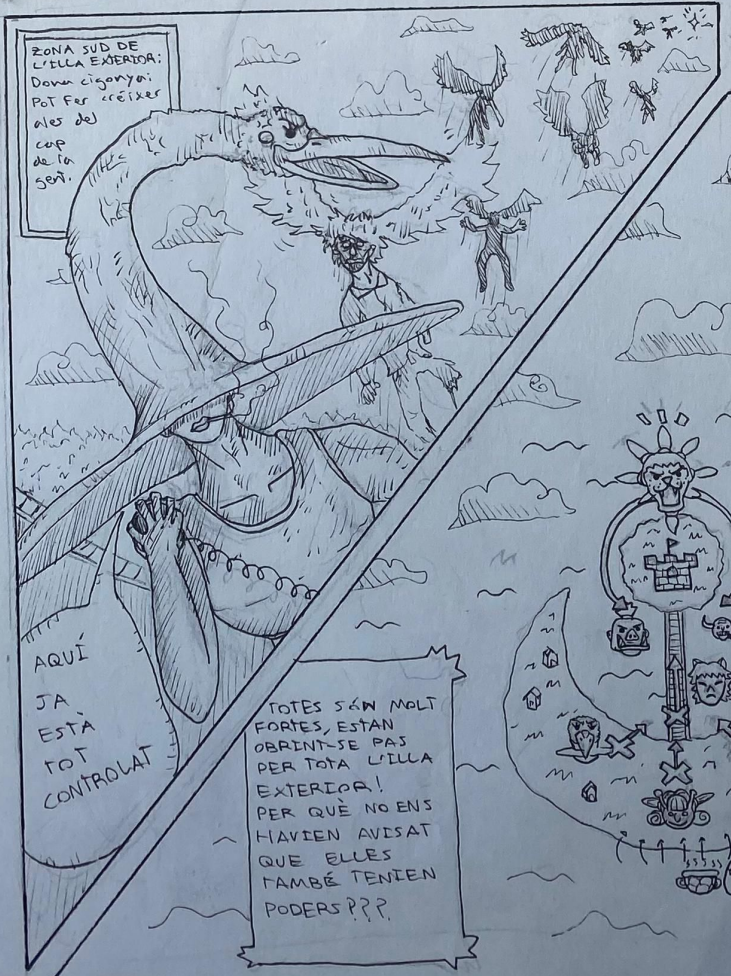 ZONA SUD DE
L'ILLA EXTERIOR:
Dona cigonya:
Pot Fer créixer
ales del
cap
de la
gent.
AQUÍ
JA
ESTÀ
TOT
CONTROLAT
TOTES SÓN MOLT
FORTES, ESTAN
OBRINT-SE PAS
PER TOTA L'ILLA
EXTERIOR!
PER QUÈ NO ENS
HAVIEN AVISAT
QUE ELLES
TAMBÉ TENIEN
PODERS???